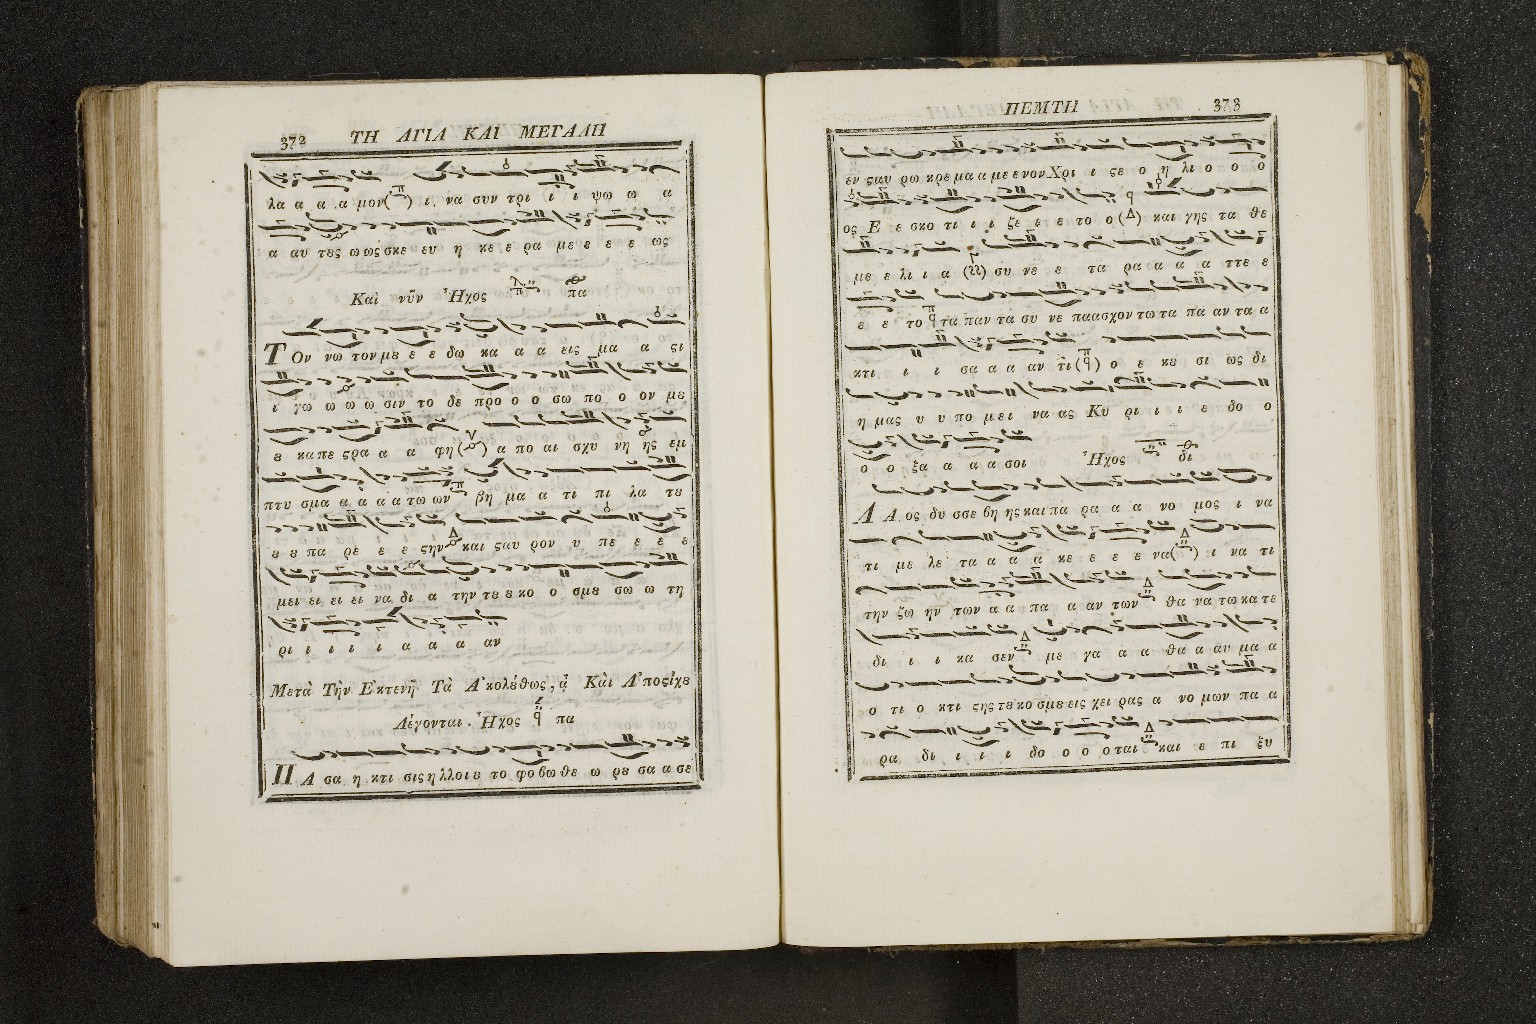 372 ΤΗ ΑΓΙΑ ΚΑΙ ΜΕΓΑΛΗ
λα α α α μον(π) ι να συν τρι ι ι ψω ω α
α αυ τȣς ω ως σκε ευ η κε ε ρα με ε ε ε ως
Καὶ νῦν Ἦχος πα
ΤΟν νω τον μȣ ε ε δω κα α α εις μα α ςι
ι γω ω ω ω σιν το δε προ ο ο σω πο ο ον μȣ
ȣ κα πε ςρα α α φη( ) α πο αι σχυ νη ης εμ
πτυ σμα α α α α τω ων βη μα α τι πι λα τȣ
ȣ ȣ πα ρε ε ε ςην και ςαυ ρον υ πε ε ε ε
μει ει ει ει να δι α την τȣ ȣ κο ο σμȣ σω ω τη
ρι ι ι ι ι α α α αν
Μετὰ Τὴν Ἐκτενῆ Τὰ Ἀκολȣ́θως, ᾳ̃ Κὰι Ἀποςίχȣ
Λέγονται. Ἦχος πα
ΠΑ σα η κτι σις η λλοι ȣ το φο βω θε ω ρȣ σα α σε
ΠΕΜΤΗ 373
εν ςαυ ρω κρε μα α με ε νον Χρι ι ςε ο η λι ο ο ο
ος Ε ε σκο τι ι ι ζε ε ε το ο (Δ) και γης τα θε
με ε λι ι α ( ) συ νε ε τα ρα α α α ττε ε
ε ε το τα παν τα συ νε πα ασχον τω τα πα αν τα α
κτι ι ι σα α α αν τι( ) ο ε κȣ σι ως δι
η μας υ υ πο μει να ας Κυ ρι ι ι ε δο ο
ο ο ξα α α α σοι Ἦχος δι
ΛΑ ος δυ σσε βη ης και πα ρα α α νο μος ι να
τι με λε τα α α α κε ε ε ε να( ) ι να τι
την ζω ην των α α πα α αν των θα να τω κα τε
δι ι ι κα σεν με γα α α θα α αυ μα α
ο τι ο κτι ςης τȣ κο σμȣ εις χει ρας α νο μων πα α
ρα δι ι ι ι δο ο ο ο ται και ε πι ξυ